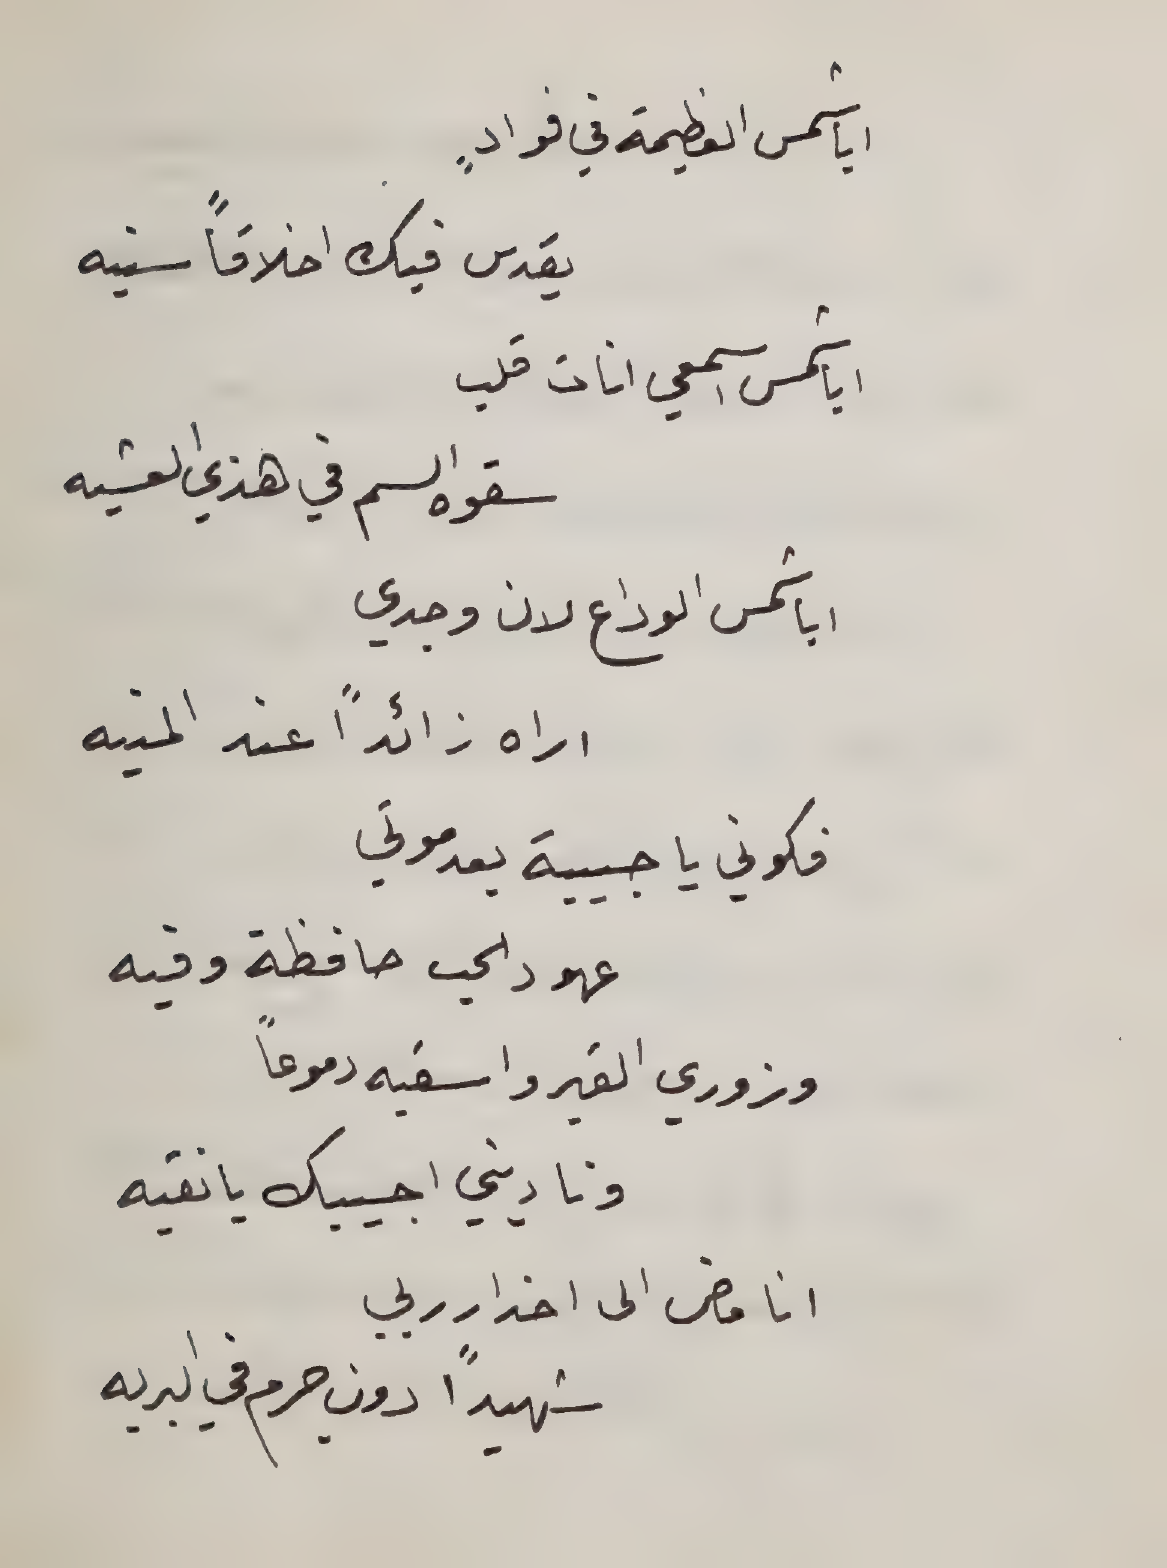 ايا شمس العظيمة في فوادٍ
يقدس فيك اخلاقاً سنيه
ايا شمس اسمعي انات قلب
سقوه السم في هذي العشيه
ايا شمس الوداع لان وجدي
اراه زائداً عند المنيه
فكوني يا حبيبة بعد موتي
عهود الحب حافظة وفيه
وزوري القبر واسقيه دموعاً
وناديني اجيبك يا نقيه
انا ماض الى اخدار ربي
شهيداً دون جرم في البريه